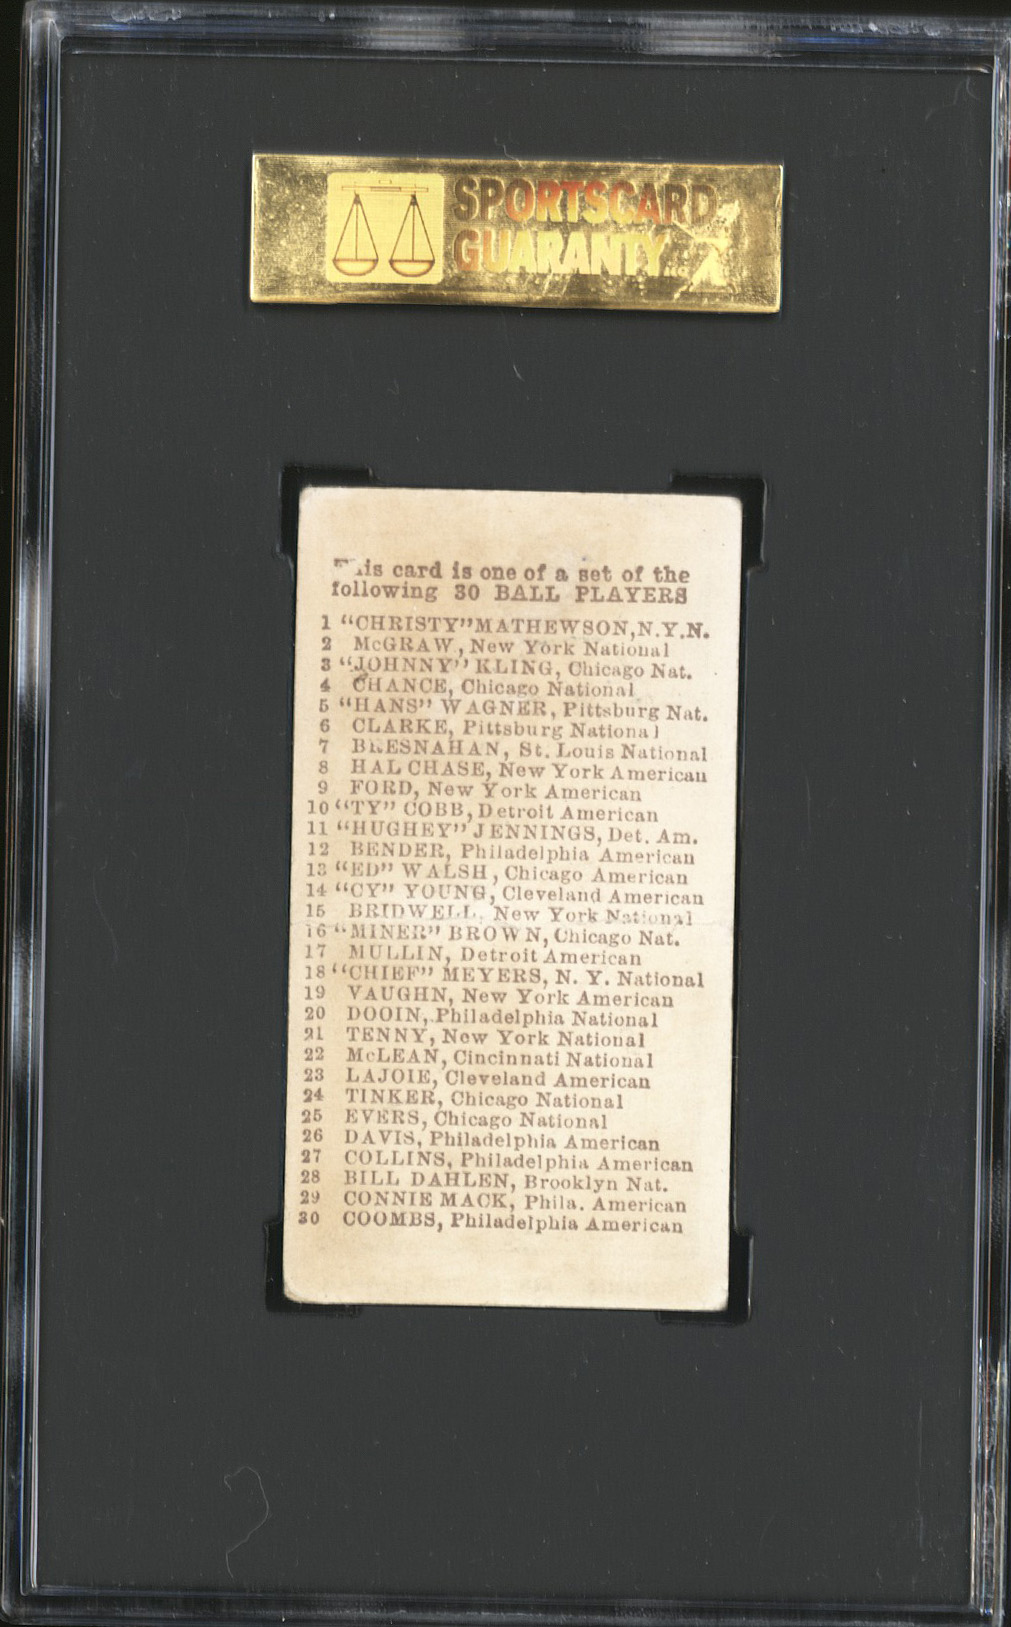 SPORTSCARD
GUARANTY
is card is one of a set of the
following 30 BALL PLAYERS
1 "CHRISTY" MATHEWSON, N.Y.N.
2 McGRAW, New York National
3 "JOHNNY" KLING, Chicago Nat.
4 CHANCE, Chicago National
5 "HANS" WAGNER, Pittsburg Nat.
6 CLARKE, Pittsburg National
7 BRESNAHAN, St. Louis National
8 HAL CHASE, New York American
9 FORD, New York American
10 "TY" COBB, Detroit American
11 "HUGHEY" JENNINGS, Det. Am.
12 BENDER, Philadelphia American
13 "ED" WALSH, Chicago American
14 "CY" YOUNG, Cleveland American
15 BRIDWELL, New York National
16 "MINER" BROWN, Chicago Nat.
17 MULLIN, Detroit American
18 "CHIEF" MEYERS, N. Y. National
19 VAUGHN, New York American
20 DOOIN, Philadelphia National
21 TENNY, New York National
22 McLEAN, Cincinnati National
23 LAJOIE, Cleveland American
24 TINKER, Chicago National
25 EVERS, Chicago National
26 DAVIS, Philadelphia American
27 COLLINS, Philadelphia American
28 BILL DAHLEN, Brooklyn Nat.
29 CONNIE MACK, Phila. American
30 COOMBS, Philadelphia American